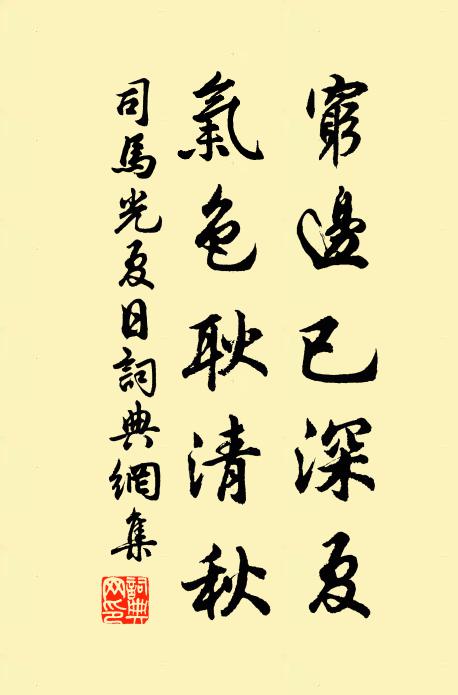 窮邊已深夏
氣色耿清秋
司馬光夏日詞典網集
詞典
网印